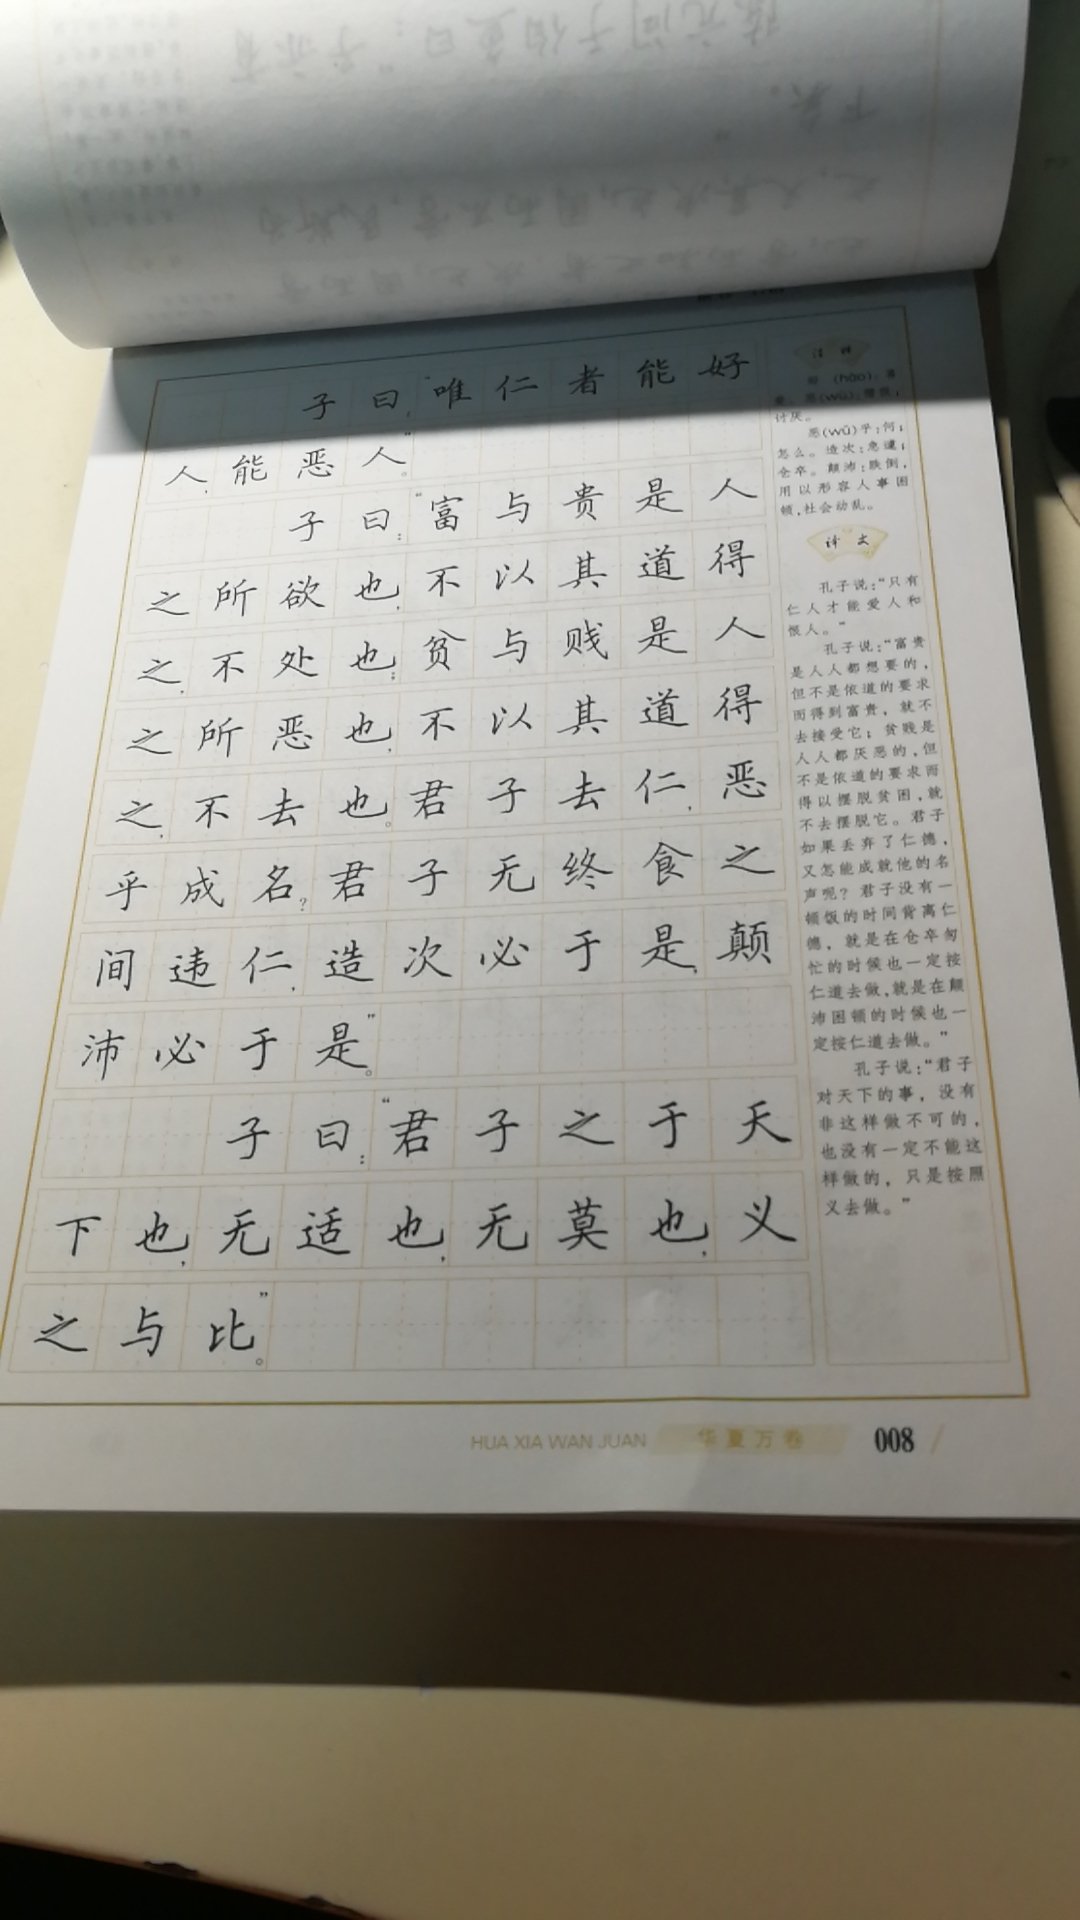 子曰:“唯仁者能好
人,能恶人。”
子曰:“富与贵是人
之所欲也,不以其道得
之,不处也;贫与贱是人
之所恶也,不以其道得
之,不去也。君子去仁,恶
乎成名?君子无终食之
间违仁,造次必于是,颠
沛必于是。”
子曰:“君子之于天
下也,无适也,无莫也,义
之与比。”
注释
(hào):喜
爱。恶(wù):憎恨,
讨厌。
恶(wū)乎:何;
怎么。造次:急遽;
仓卒。颠沛:跌倒,
用以形容人事困
顿,社会动乱。
译文
孔子说:“只有
仁人才能爱人和
恨人。”
孔子说:“富贵
是人人都想要的,
但不是依道的要求
而得到富贵,就不
去接受它;贫贱是
人人都厌恶的,但
不是依道的要求而
得以摆脱贫困,就
不去摆脱它。君子
如果丢弃了仁德,
又怎能成就他的名
声呢?君子没有一
顿饭的时间背离仁
德,就是在仓卒匆
忙的时候也一定按
仁道去做,就是在颠
沛困顿的时候也一
定按仁道去做。”
孔子说:“君子
对天下的事,没有
非这样做不可的,
也没有一定不能这
样做的,只是按照
义去做。”
HUA XIA WAN JUAN 华夏万卷 008